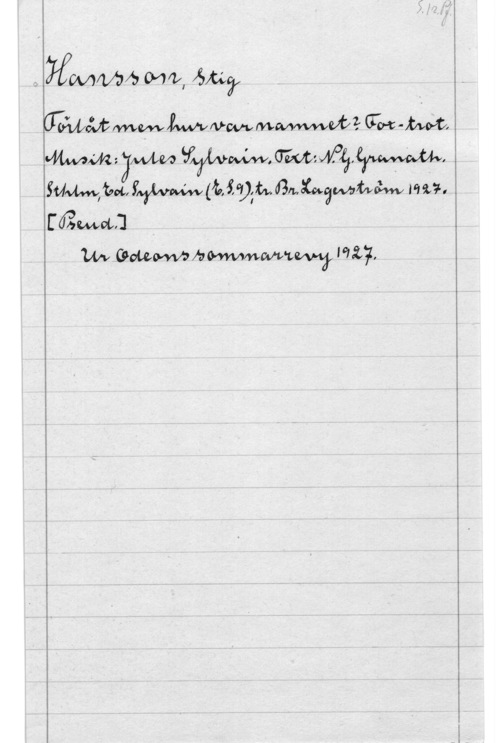 Hansson, Stig
Förlåt men hur var namnet? Fox-trot.
Musik: Jules Sylvain. Text: N. G. Granath.
Sthlm, Ed. Sylvain (E.S.9), tr. Br. Lagerström 1927.
[Pseud.]
Ur Odeons sommarrevy 1927.